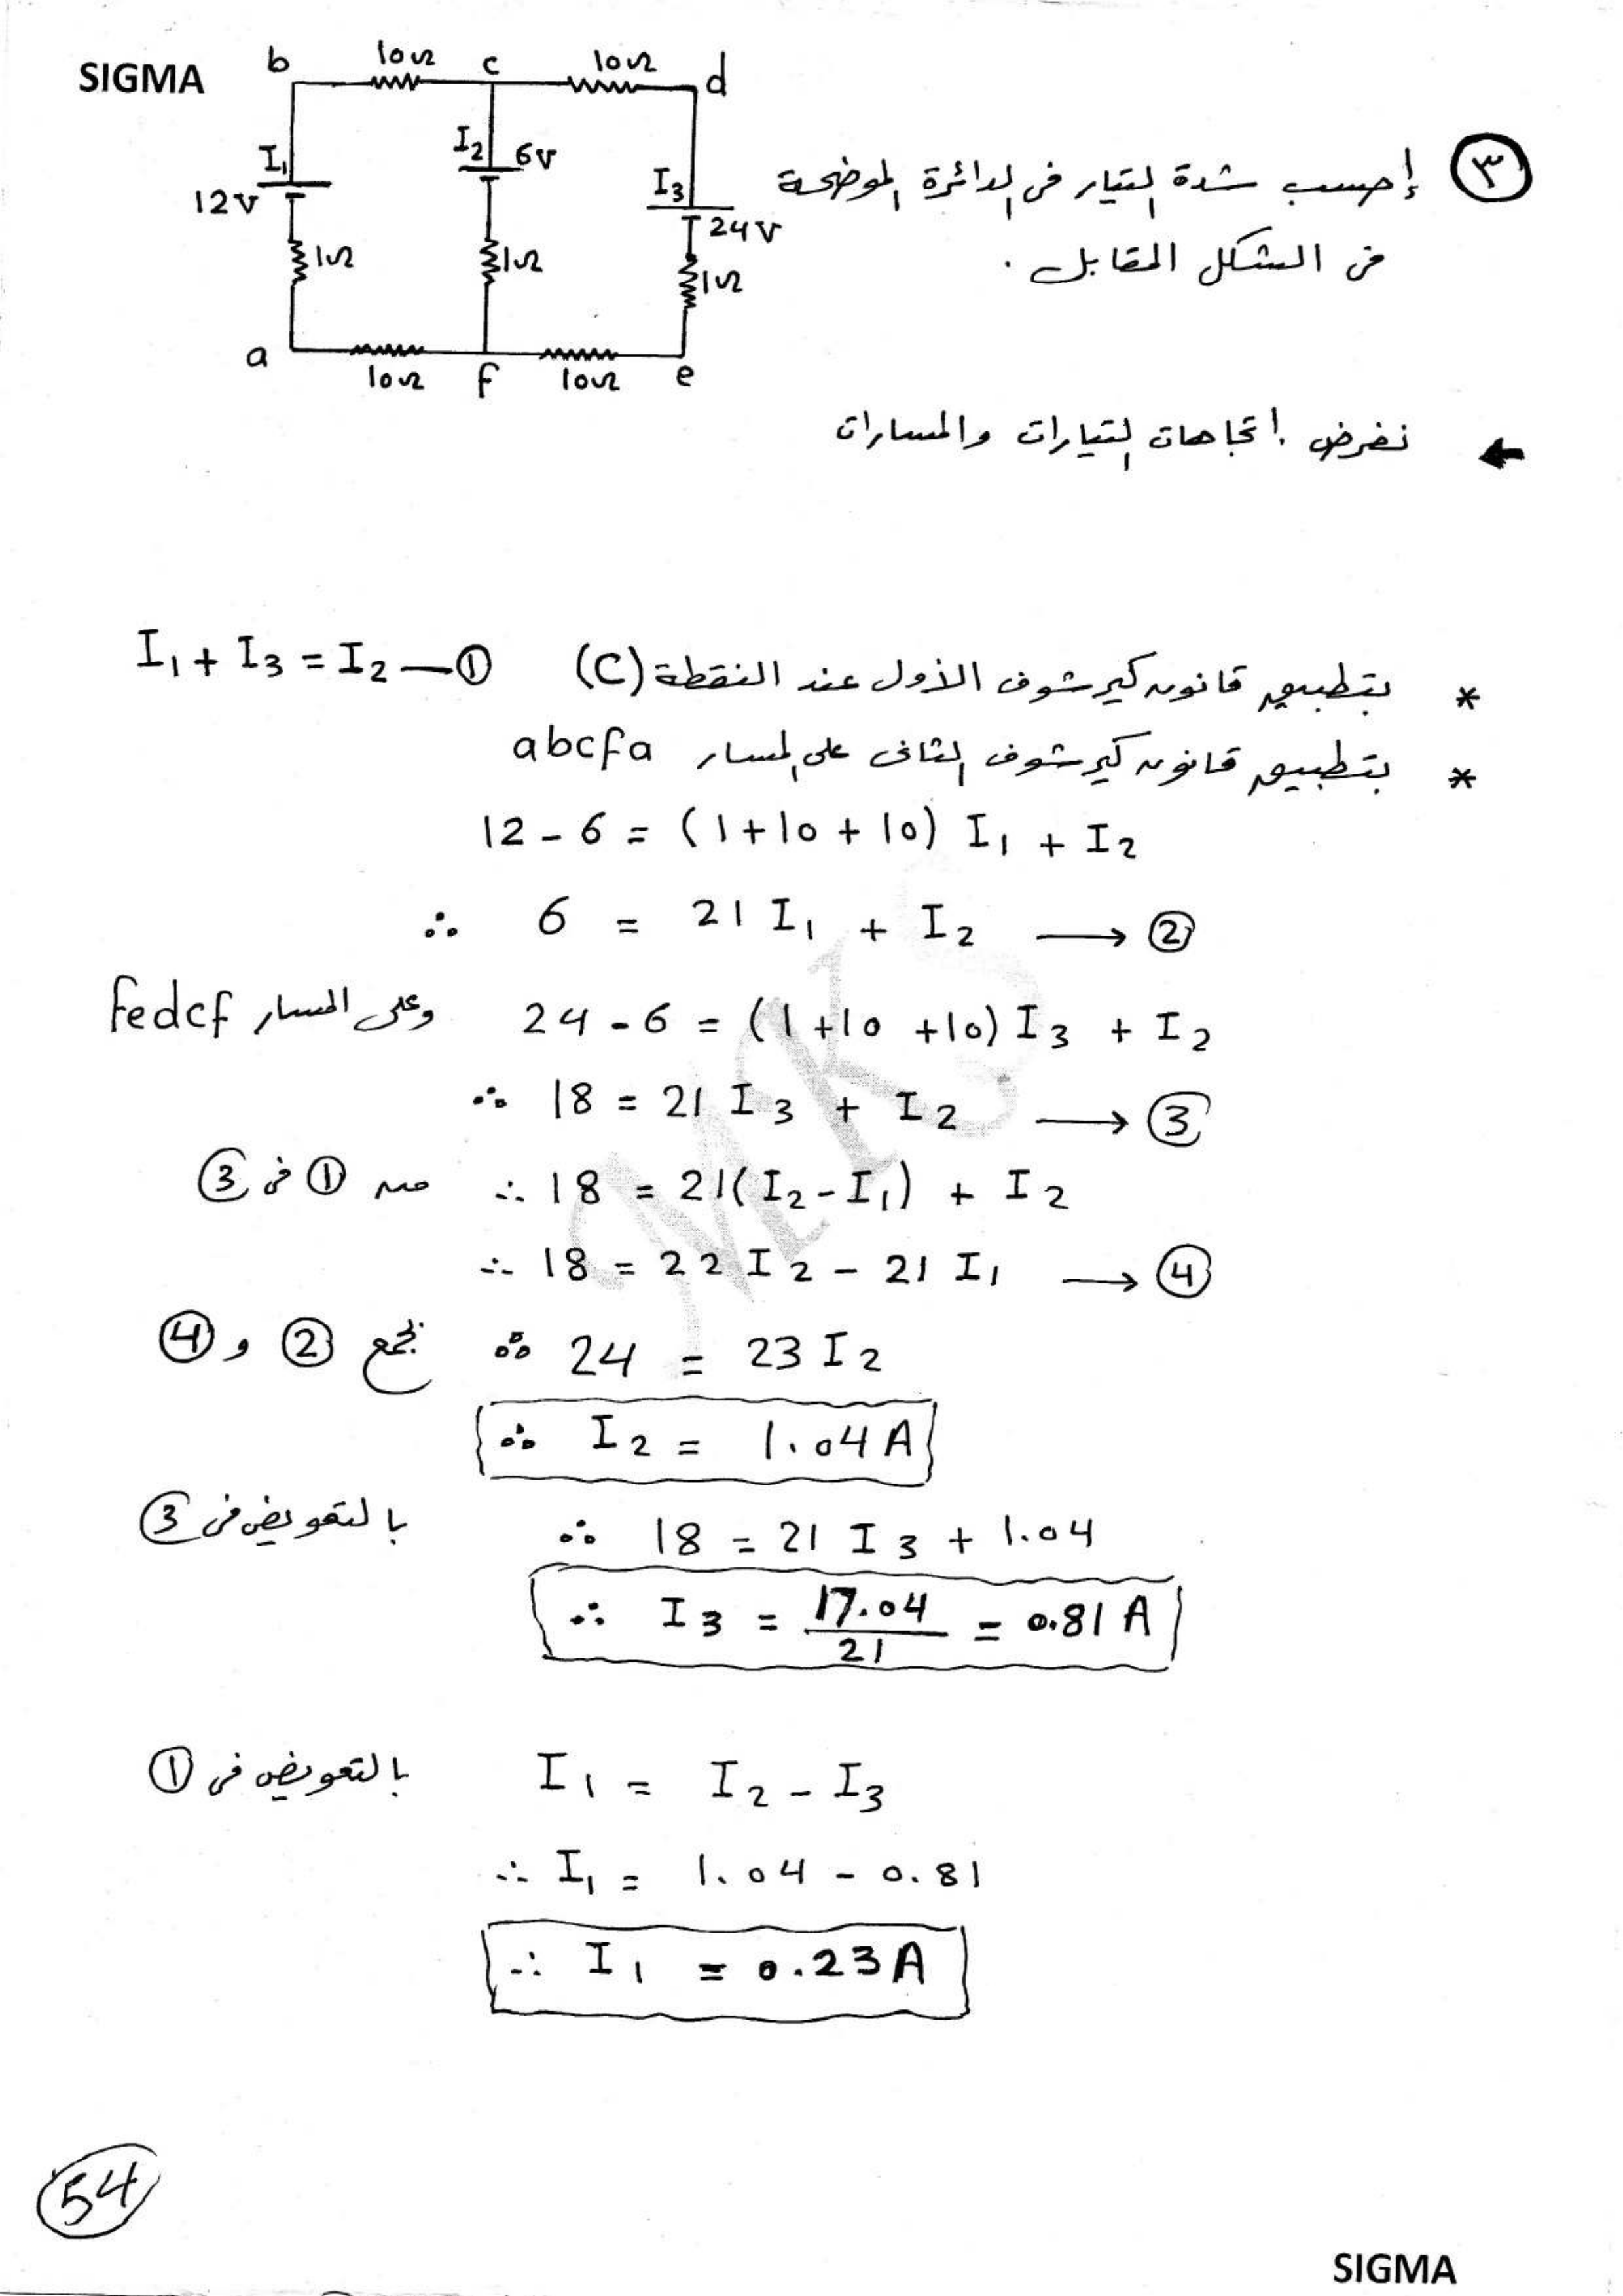 SIGMA
b 10Ω c 10Ω d
I₁ 12V 1Ω
I₂ 6V 1Ω
I₃ 24V 1Ω
a 10Ω f 10Ω e
٣ إحسب شدة التيار فى الدائرة الموضحة
فى الشكل المقابل .
← نفرض إتجاهات التيارات والمسارات
* بتطبيق قانون كيرشوف الأول عند النقطة (C) I₁ + I₃ = I₂ — ①
* بتطبيق قانون كيرشوف الثانى على المسار abcfa
12 - 6 = (1+10+10) I₁ + I₂
∴ 6 = 21 I₁ + I₂ → ②
وعلى المسار fedcf 24 - 6 = (1+10+10) I₃ + I₂
∴ 18 = 21 I₃ + I₂ → ③
من ① فى ③ ∴ 18 = 21(I₂-I₁) + I₂
∴ 18 = 22 I₂ - 21 I₁ → ④
بجمع ② و ④ ∴ 24 = 23 I₂
∴ I₂ = 1.04 A
بالتعويض فى ③ ∴ 18 = 21 I₃ + 1.04
∴ I₃ = 17.04/21 = 0.81 A
بالتعويض فى ① I₁ = I₂ - I₃
∴ I₁ = 1.04 - 0.81
∴ I₁ = 0.23 A
MKS
54
SIGMA